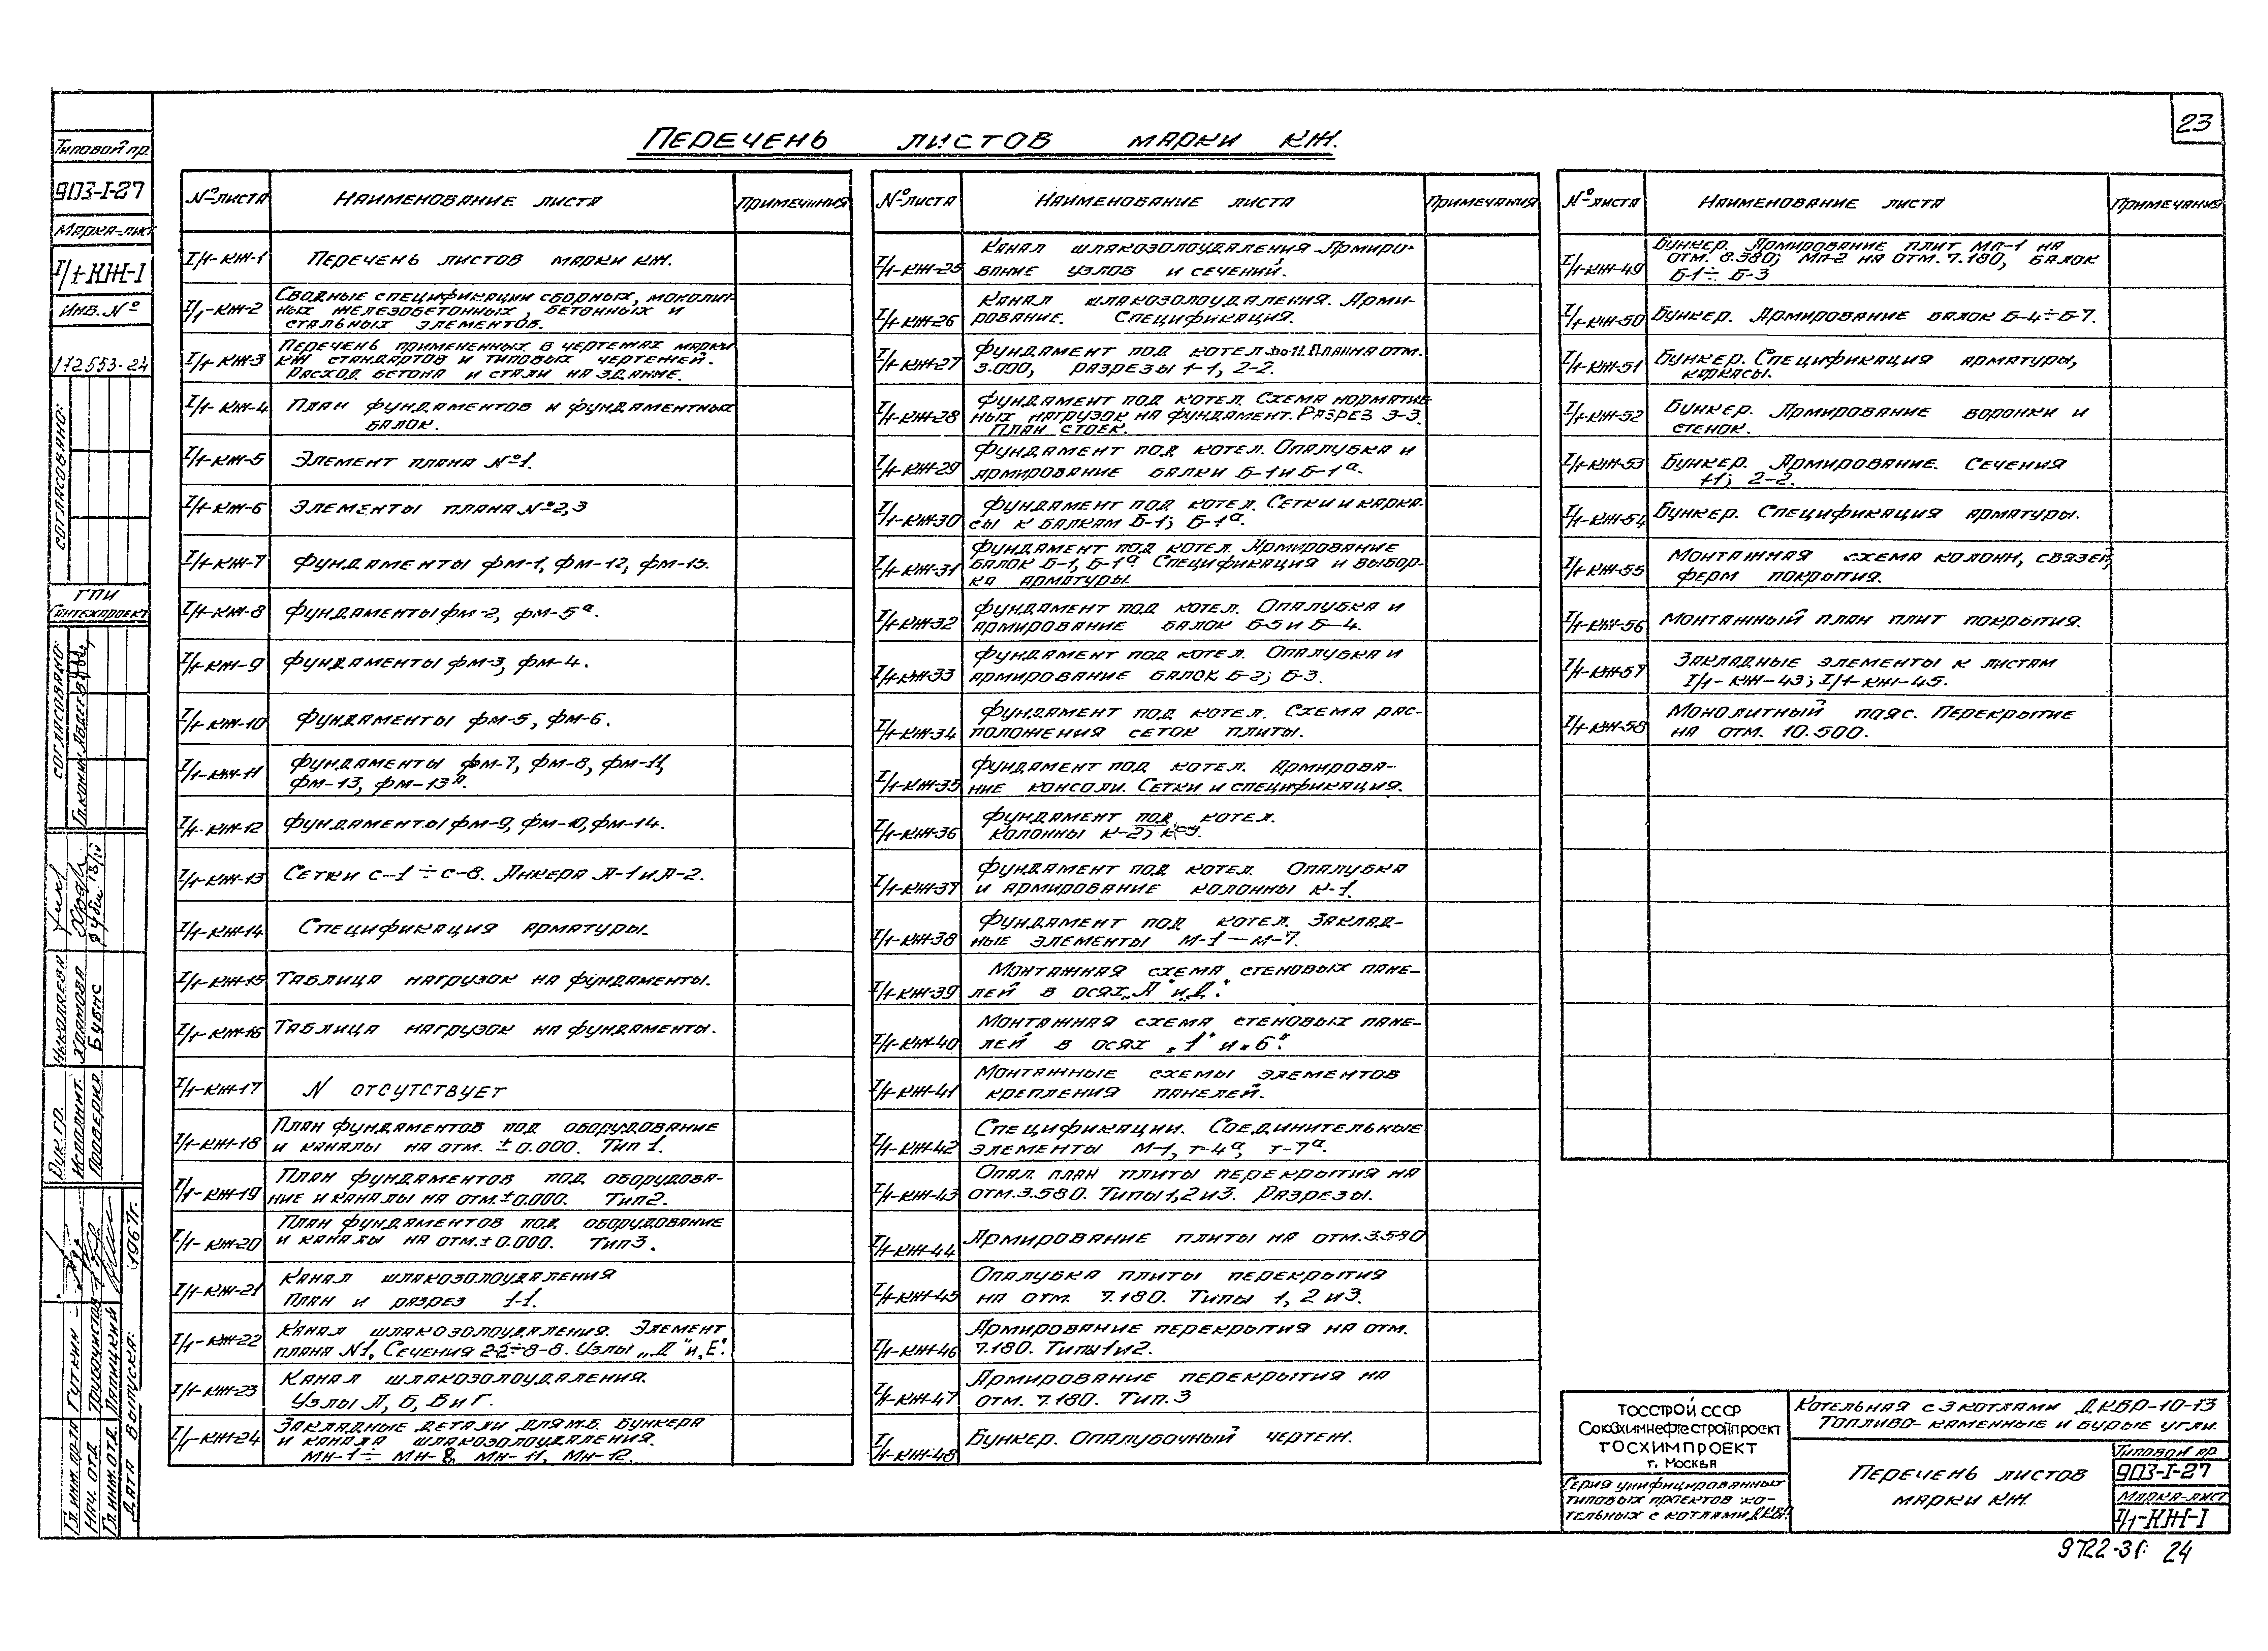 23
Перечень листов марки КЖ.
Типовой пр.
903-I-27
Марка-лист
I/1-КЖ-1
Инв. №
172553-24
Согласовано:
ГПИ
Сантехпроект
Согласовано:
Рук. гр.
Николаева
Исполнит.
Храмова
Проверил
Бубис
Гл. инж. пр-та
Гуткин
Нач. отд.
Гл. инж. отд.
Ляпицкий
Дата выпуска: 1967г.
№ листа
Наименование листа
Примечания
I/1-КЖ-1
Перечень листов марки КЖ.
I/1-КЖ-2
Сводные спецификации сборных, монолит-
ных железобетонных, бетонных и
стальных элементов.
I/1-КЖ-3
Перечень примененных в чертежах марки
КЖ стандартов и типовых чертежей.
Расход бетона и стали на здание.
I/1-КЖ-4
План фундаментов и фундаментных
балок.
I/1-КЖ-5
Элемент плана №1.
I/1-КЖ-6
Элементы плана №2,3
I/1-КЖ-7
Фундаменты фм-1, фм-12, фм-15.
I/1-КЖ-8
Фундаменты фм-2, фм-5а.
I/1-КЖ-9
Фундаменты фм-3, фм-4.
I/1-КЖ-10
Фундаменты фм-5, фм-6.
I/1-КЖ-11
Фундаменты фм-7, фм-8, фм-11,
фм-13, фм-13А.
I/1-КЖ-12
Фундаменты фм-9, фм-10, фм-14.
I/1-КЖ-13
Сетки с-1÷с-8. Анкера А-1 и А-2.
I/1-КЖ-14
Спецификация арматуры.
I/1-КЖ-15
Таблица нагрузок на фундаменты.
I/1-КЖ-16
Таблица нагрузок на фундаменты.
I/1-КЖ-17
N отсутствует
I/1-КЖ-18
План фундаментов под оборудование
и каналы на отм. ±0.000. Тип 1.
I/1-КЖ-19
План фундаментов под оборудова-
ние и каналы на отм. ±0.000. Тип 2.
I/1-КЖ-20
План фундаментов под оборудование
и каналы на отм. ±0.000. Тип 3.
I/1-КЖ-21
Канал шлакозолоудаления
План и разрез 1-1.
I/1-КЖ-22
Канал шлакозолоудаления. Элемент
плана №1. Сечения 2-2÷8-8. Узлы „Д" и „Е".
I/1-КЖ-23
Канал шлакозолоудаления.
Узлы А, Б, В и Г.
I/1-КЖ-24
Закладные детали для м.б. бункера
и канала шлакозолоудаления.
Мн-1÷ Мн-8, Мн-11, Мн-12.
№ листа
Наименование листа
Примечания
I/1-КЖ-25
Канал шлакозолоудаления. Армиро-
вание узлов и сечений.
I/1-КЖ-26
Канал шлакозолоудаления. Арми-
рование. Спецификация.
I/1-КЖ-27
Фундамент под котел. План на отм.
3.000, разрезы 1-1, 2-2.
I/1-КЖ-28
Фундамент под котел. Схема норматив-
ных нагрузок на фундамент. Разрез 3-3.
План стоек.
I/1-КЖ-29
Фундамент под котел. Опалубка и
армирование балки Б-1 и Б-1а.
I/1-КЖ-30
Фундамент под котел. Сетки и карка-
сы к балкам Б-1; Б-1а.
I/1-КЖ-31
Фундамент под котел. Армирование
балок Б-1, Б-1а Спецификация и выбор-
ка арматуры.
I/1-КЖ-32
Фундамент под котел. Опалубка и
армирование балок Б-5 и Б-4.
I/1-КЖ-33
Фундамент под котел. Опалубка и
армирование балок Б-2; Б-3.
I/1-КЖ-34
Фундамент под котел. Схема рас-
положения сеток плиты.
I/1-КЖ-35
Фундамент под котел. Армирова-
ние консоли. Сетки и спецификация.
I/1-КЖ-36
Фундамент под котел.
Колонны К-2;
I/1-КЖ-37
Фундамент под котел. Опалубка
и армирование колонны К-1.
I/1-КЖ-38
Фундамент под котел. Заклад-
ные элементы М-1 — М-7.
I/1-КЖ-39
Монтажная схема стеновых пане-
лей в осях „А" и „Д".
I/1-КЖ-40
Монтажная схема стеновых пане-
лей в осях „1" и „6".
I/1-КЖ-41
Монтажные схемы элементов
крепления панелей.
I/1-КЖ-42
Спецификации. Соединительные
элементы М-1, т-4а, т-7а.
I/1-КЖ-43
Опал. план плиты перекрытия на
отм. 3.580. Типы 1, 2 и 3. Разрезы.
I/1-КЖ-44
Армирование плиты на отм. 3.580
I/1-КЖ-45
Опалубка плиты перекрытия
на отм. 7.180. Типы 1, 2 и 3.
I/1-КЖ-46
Армирование перекрытия на отм.
7.180. Типы 1 и 2.
I/1-КЖ-47
Армирование перекрытия на
отм. 7.180. Тип. 3
I/1-КЖ-48
Бункер. Опалубочный чертеж.
№ листа
Наименование листа
Примечания
I/1-КЖ-49
Бункер. Армирование плит Мп-1 на
отм. 8.380; Мп-2 на отм. 7.180, балок
Б-1÷ Б-3
I/1-КЖ-50
Бункер. Армирование балок Б-4÷Б-7.
I/1-КЖ-51
Бункер. Спецификация арматуры,
каркасы.
I/1-КЖ-52
Бункер. Армирование воронки и
стенок.
I/1-КЖ-53
Бункер. Армирование. Сечения
1-1; 2-2.
I/1-КЖ-54
Бункер. Спецификация арматуры.
I/1-КЖ-55
Монтажная схема колонн, связей,
ферм покрытия.
I/1-КЖ-56
Монтажный план плит покрытия.
I/1-КЖ-57
Закладные элементы к листам
I/1-КЖ-43; I/1-КЖ-45.
I/1-КЖ-58
Монолитный пояс. Перекрытие
на отм. 10.500.
Госстрой СССР
Союзхимнефтестройпроект
ГОСХИМПРОЕКТ
г. Москва
Серия унифицированных
типовых проектов ко-
тельных с котлами ДКВР.
Котельная с 3 котлами ДКВР-10-13
Топливо - каменные и бурые угли.
Перечень листов
марки КЖ.
Типовой пр.
903-I-27
Марка-лист
I/1-КЖ-1
24